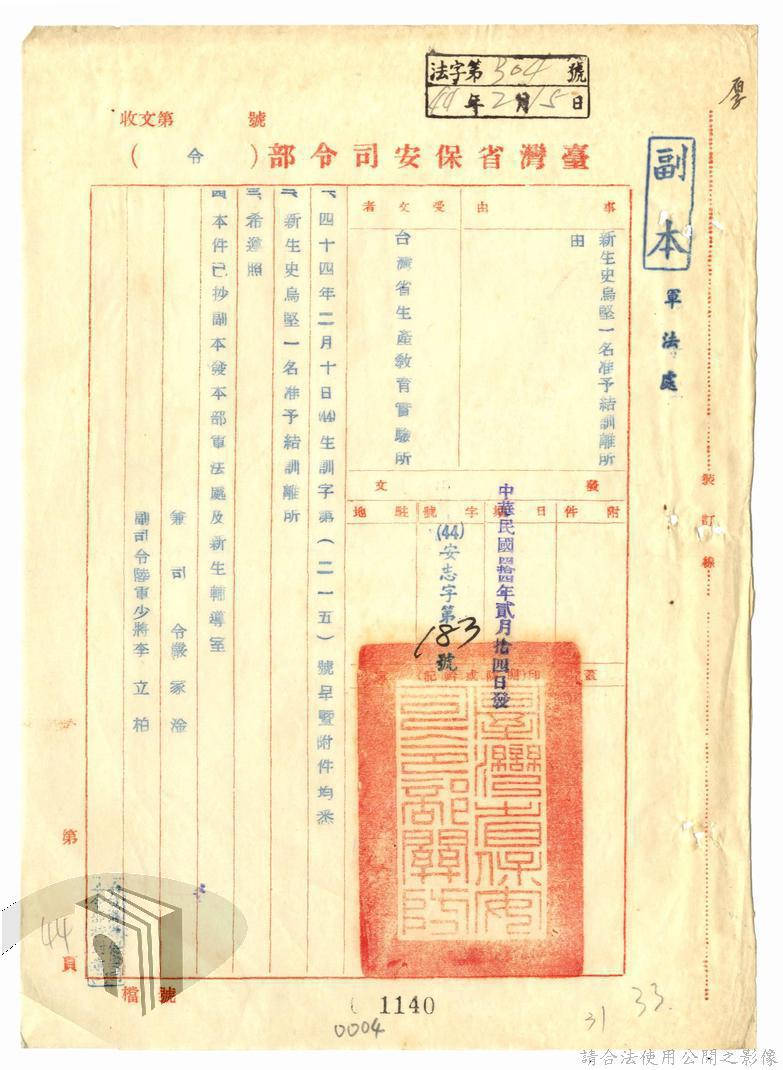 法字第304號
44年2月15日
收文第 號
臺灣省保安司令部(令)
副本
軍法處
裝訂線
事由
新生史烏堅一名准予結訓離所由
受文者
台灣省生產教育實驗所
發文
附件
日
字號
駐地
中華民國肆拾四年貳月拾四日發
(44)安志字第183號
蓋印
臺灣省保安司令部關防
一、四十四年二月十日(44)生訓字第(二一五)號呈暨附件均悉
二、新生史烏堅一名准予結訓離所
三、希遵照
四、本件已抄副本發本部軍法處及新生輔導室
兼司令嚴家淦
副司令陸軍少將李立柏
第44頁
檔號
1140
0004
31
33
請合法使用公開之影像